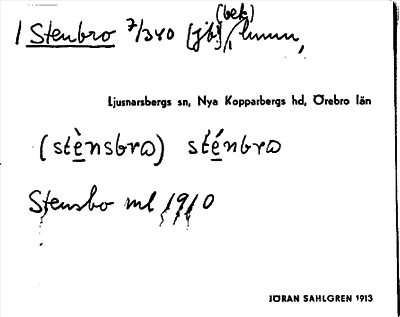 (bek)
1 Stenbro 7/340 (jb),
Ljusnarsbergs sn, Nya Kopparbergs hd, Örebro län
(stènsbrɷ) sténbrɷ
Stensbo ml 1910
JÖRAN SAHLGREN 1913